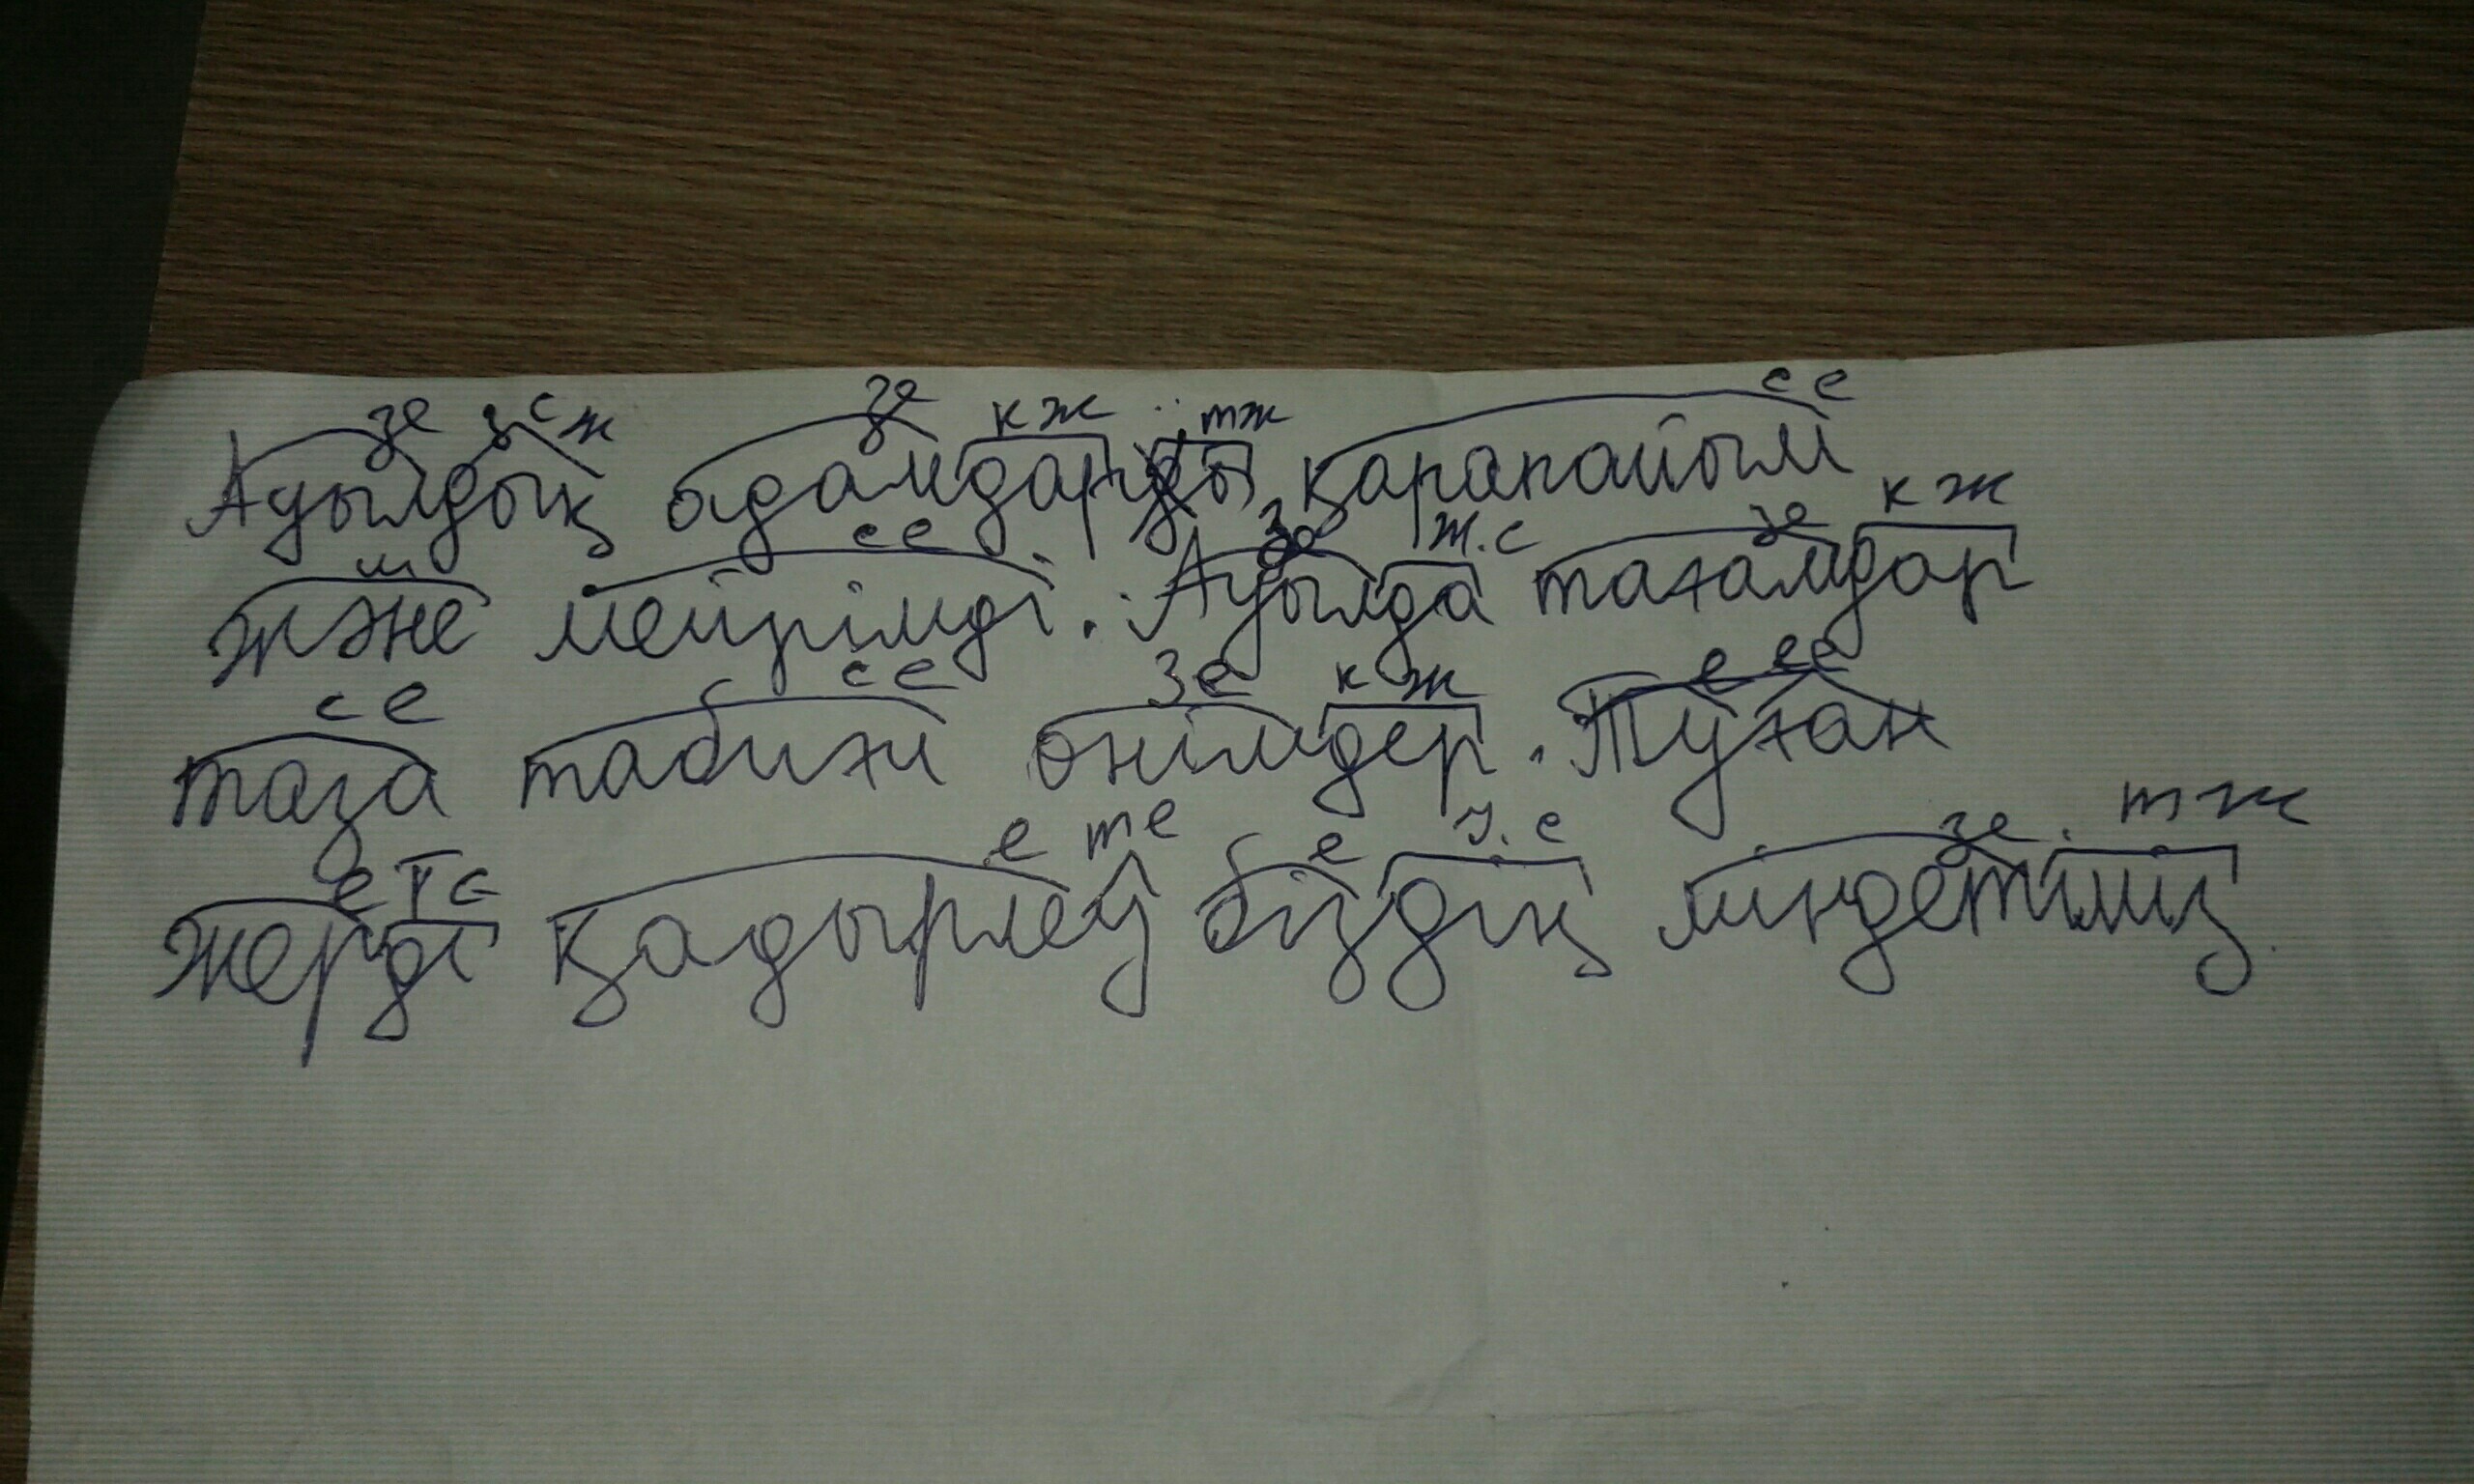 зе зсж зе кж тж се
Ауылдық адамдары қарапайым
ш се зе ж.с зе кж
және мейрімді. Ауылда тағамдар
се се зе кж е се
таза табиғи өнімдер. Туған
е тс е те е і.с зе тж
жерді қадырлеу біздің міндетіміз